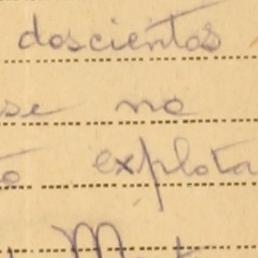 doscientos
se no
explota